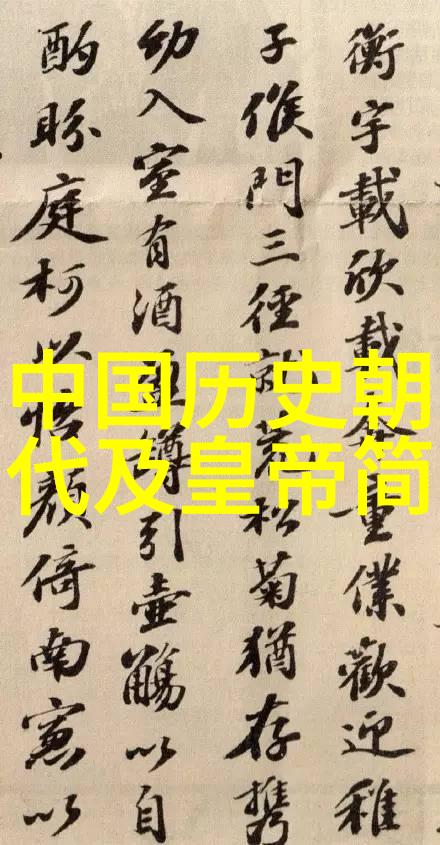 衡宇載欣載奔童僕歡迎稚
子候門三徑就荒松菊猶存携
幼入室有酒盈罇引壺觴以自
酌眄庭柯以怡顏倚南窓以
中国历史朝
代及皇帝简